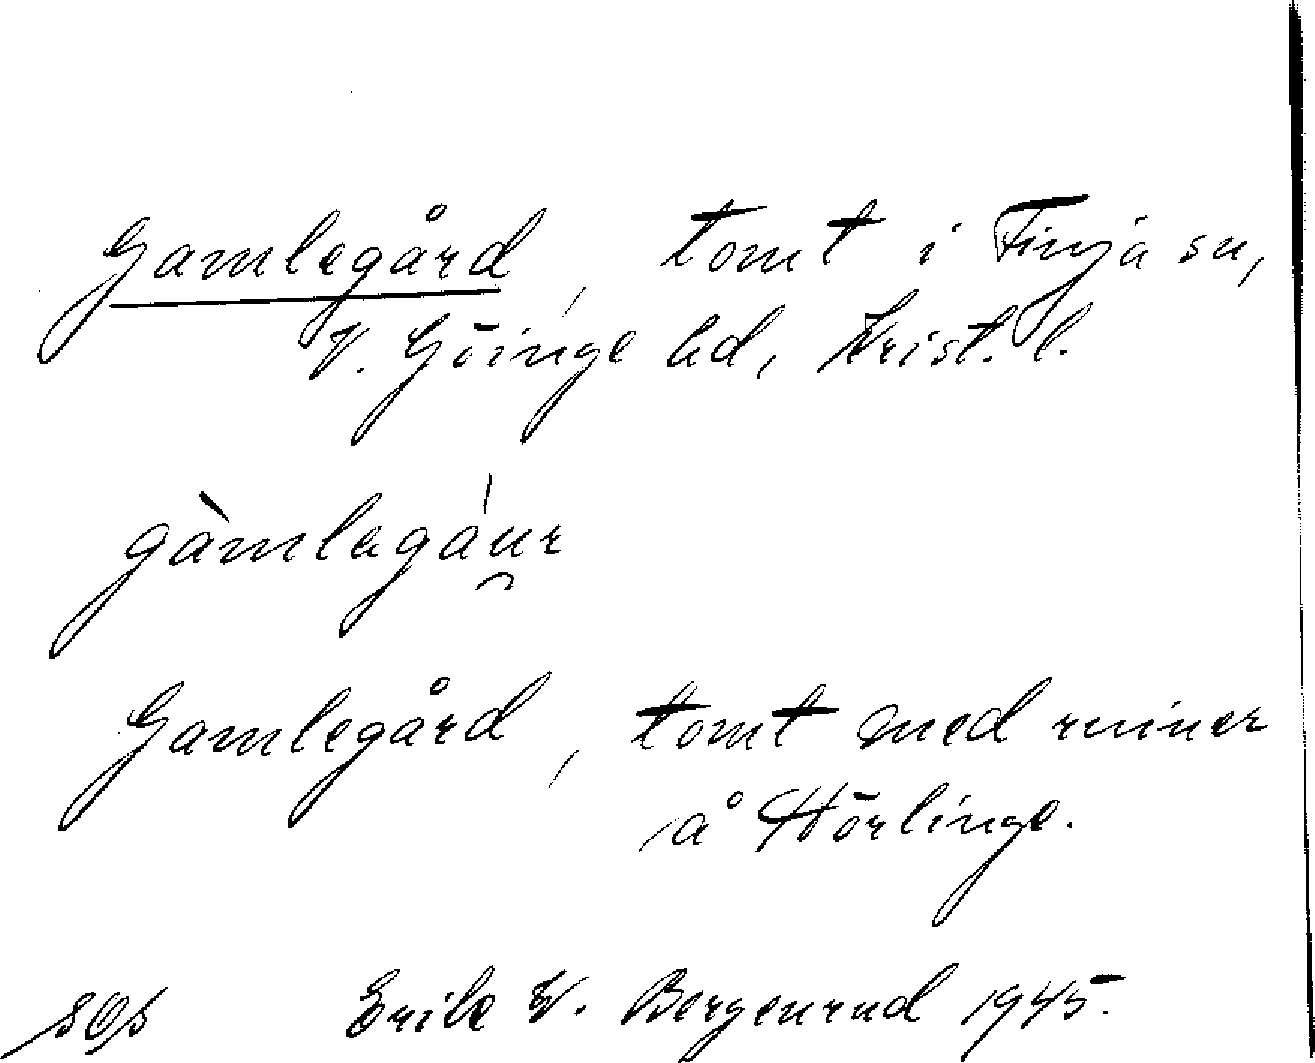 Gamlegård, tomt i Finja sn,
V. Göinge hd, Krist. l.
gàmlagáu̯r
Gamlegård, tomt med ruiner
å Hörlinge.
Erik W. Bergenrud 1945.